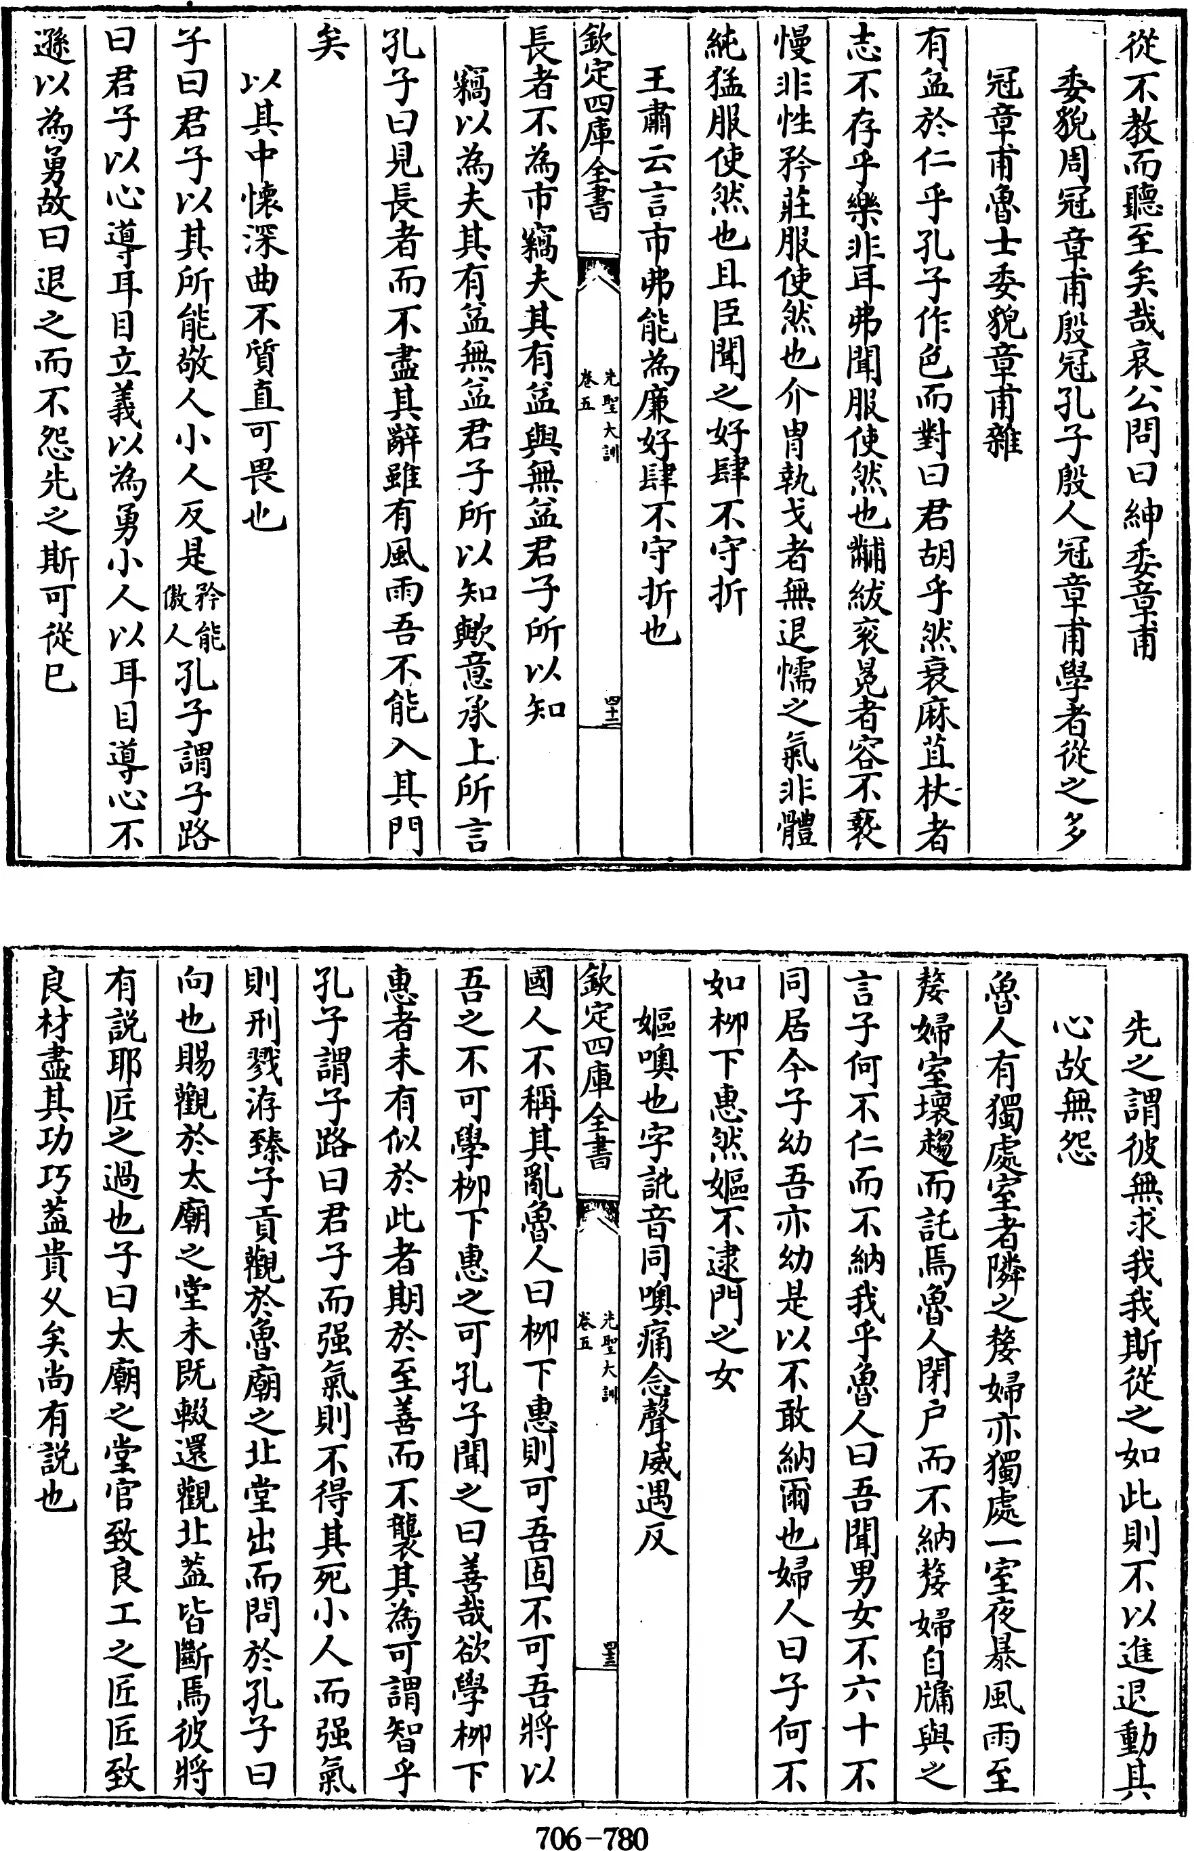 從不教而聽至矣哉哀公問曰紳委章甫
委貌周冠章甫殷冠孔子殷人冠章甫學者從之多
冠章甫魯士委貌章甫雜
有益於仁乎孔子作色而對曰君胡乎然衰麻苴杖者
志不存乎樂非耳弗聞服使然也黼紱衮冕者容不褻
慢非性矜莊服使然也介胄執戈者無退懦之氣非體
純猛服使然也且臣聞之好肆不守折
王肅云言市弗能為廉好肆不守折也
欽定四庫全書 先聖大訓 卷五 四十二
長者不為市竊夫其有益與無益君子所以知
竊以為夫其有益無益君子所以知歟意承上所言
孔子曰見長者而不盡其辭雖有風雨吾不能入其門
矣
以其中懷深曲不質直可畏也
子曰君子以其所能敬人小人反是矜能傲人孔子謂子路
曰君子以心導耳目立義以為勇小人以耳目導心不
遜以為勇故曰退之而不怨先之斯可從已
先之謂彼無求我我斯從之如此則不以進退動其
心故無怨
魯人有獨處室者隣之嫠婦亦獨處一室夜暴風雨至
嫠婦室壞趨而託焉魯人閉户而不納嫠婦自牖與之
言子何不仁而不納我乎魯人曰吾聞男女不六十不
同居今子幼吾亦幼是以不敢納爾也婦人曰子何不
如栁下惠然嫗不逮門之女
嫗噢也字訛音同噢痛念聲威遇反
欽定四庫全書 先聖大訓 卷五 四十三
國人不稱其亂魯人曰栁下惠則可吾固不可吾將以
吾之不可學栁下惠之可孔子聞之曰善哉欲學栁下
惠者未有似於此者期於至善而不襲其為可謂智乎
孔子謂子路曰君子而强氣則不得其死小人而强氣
則刑戮洊臻子貢觀於魯廟之北堂出而問於孔子曰
向也賜觀於太廟之堂未既輟還觀北蓋皆斷焉彼將
有說耶匠之過也子曰太廟之堂官致良工之匠匠致
良材盡其功巧蓋貴乆矣尚有説也
706-780